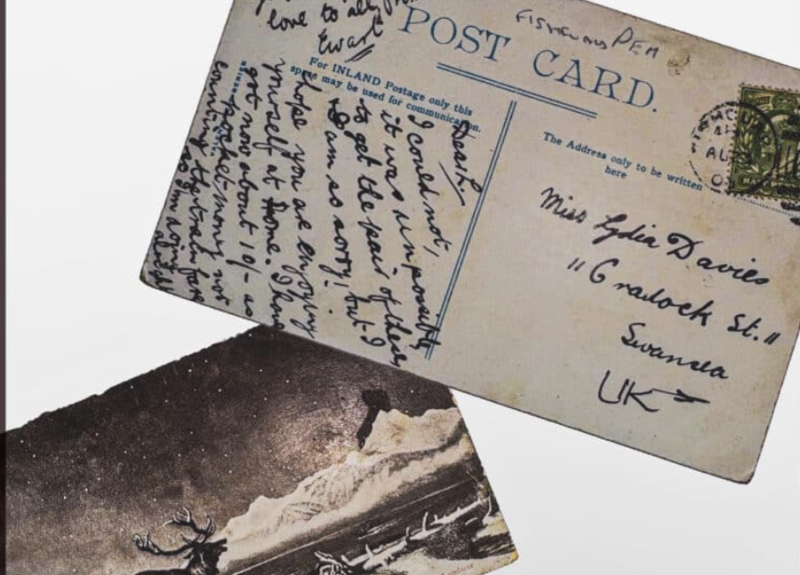 love to all from
Ewart
FISHGUARD PEM
POST CARD.
For INLAND Postage only this
space may be used for communication.
The Address only to be written
here
Dear L
I could not,
it was impossible
to get the pair of theirs
I am so sorry! but I
hope you are enjoying
yourself at Home. I have
got now about 10/- as
pocket money not
counting the train fare
so I'm doing
alright
Miss Lydia Davies
"Cradock St."
Swansea
UK
AU